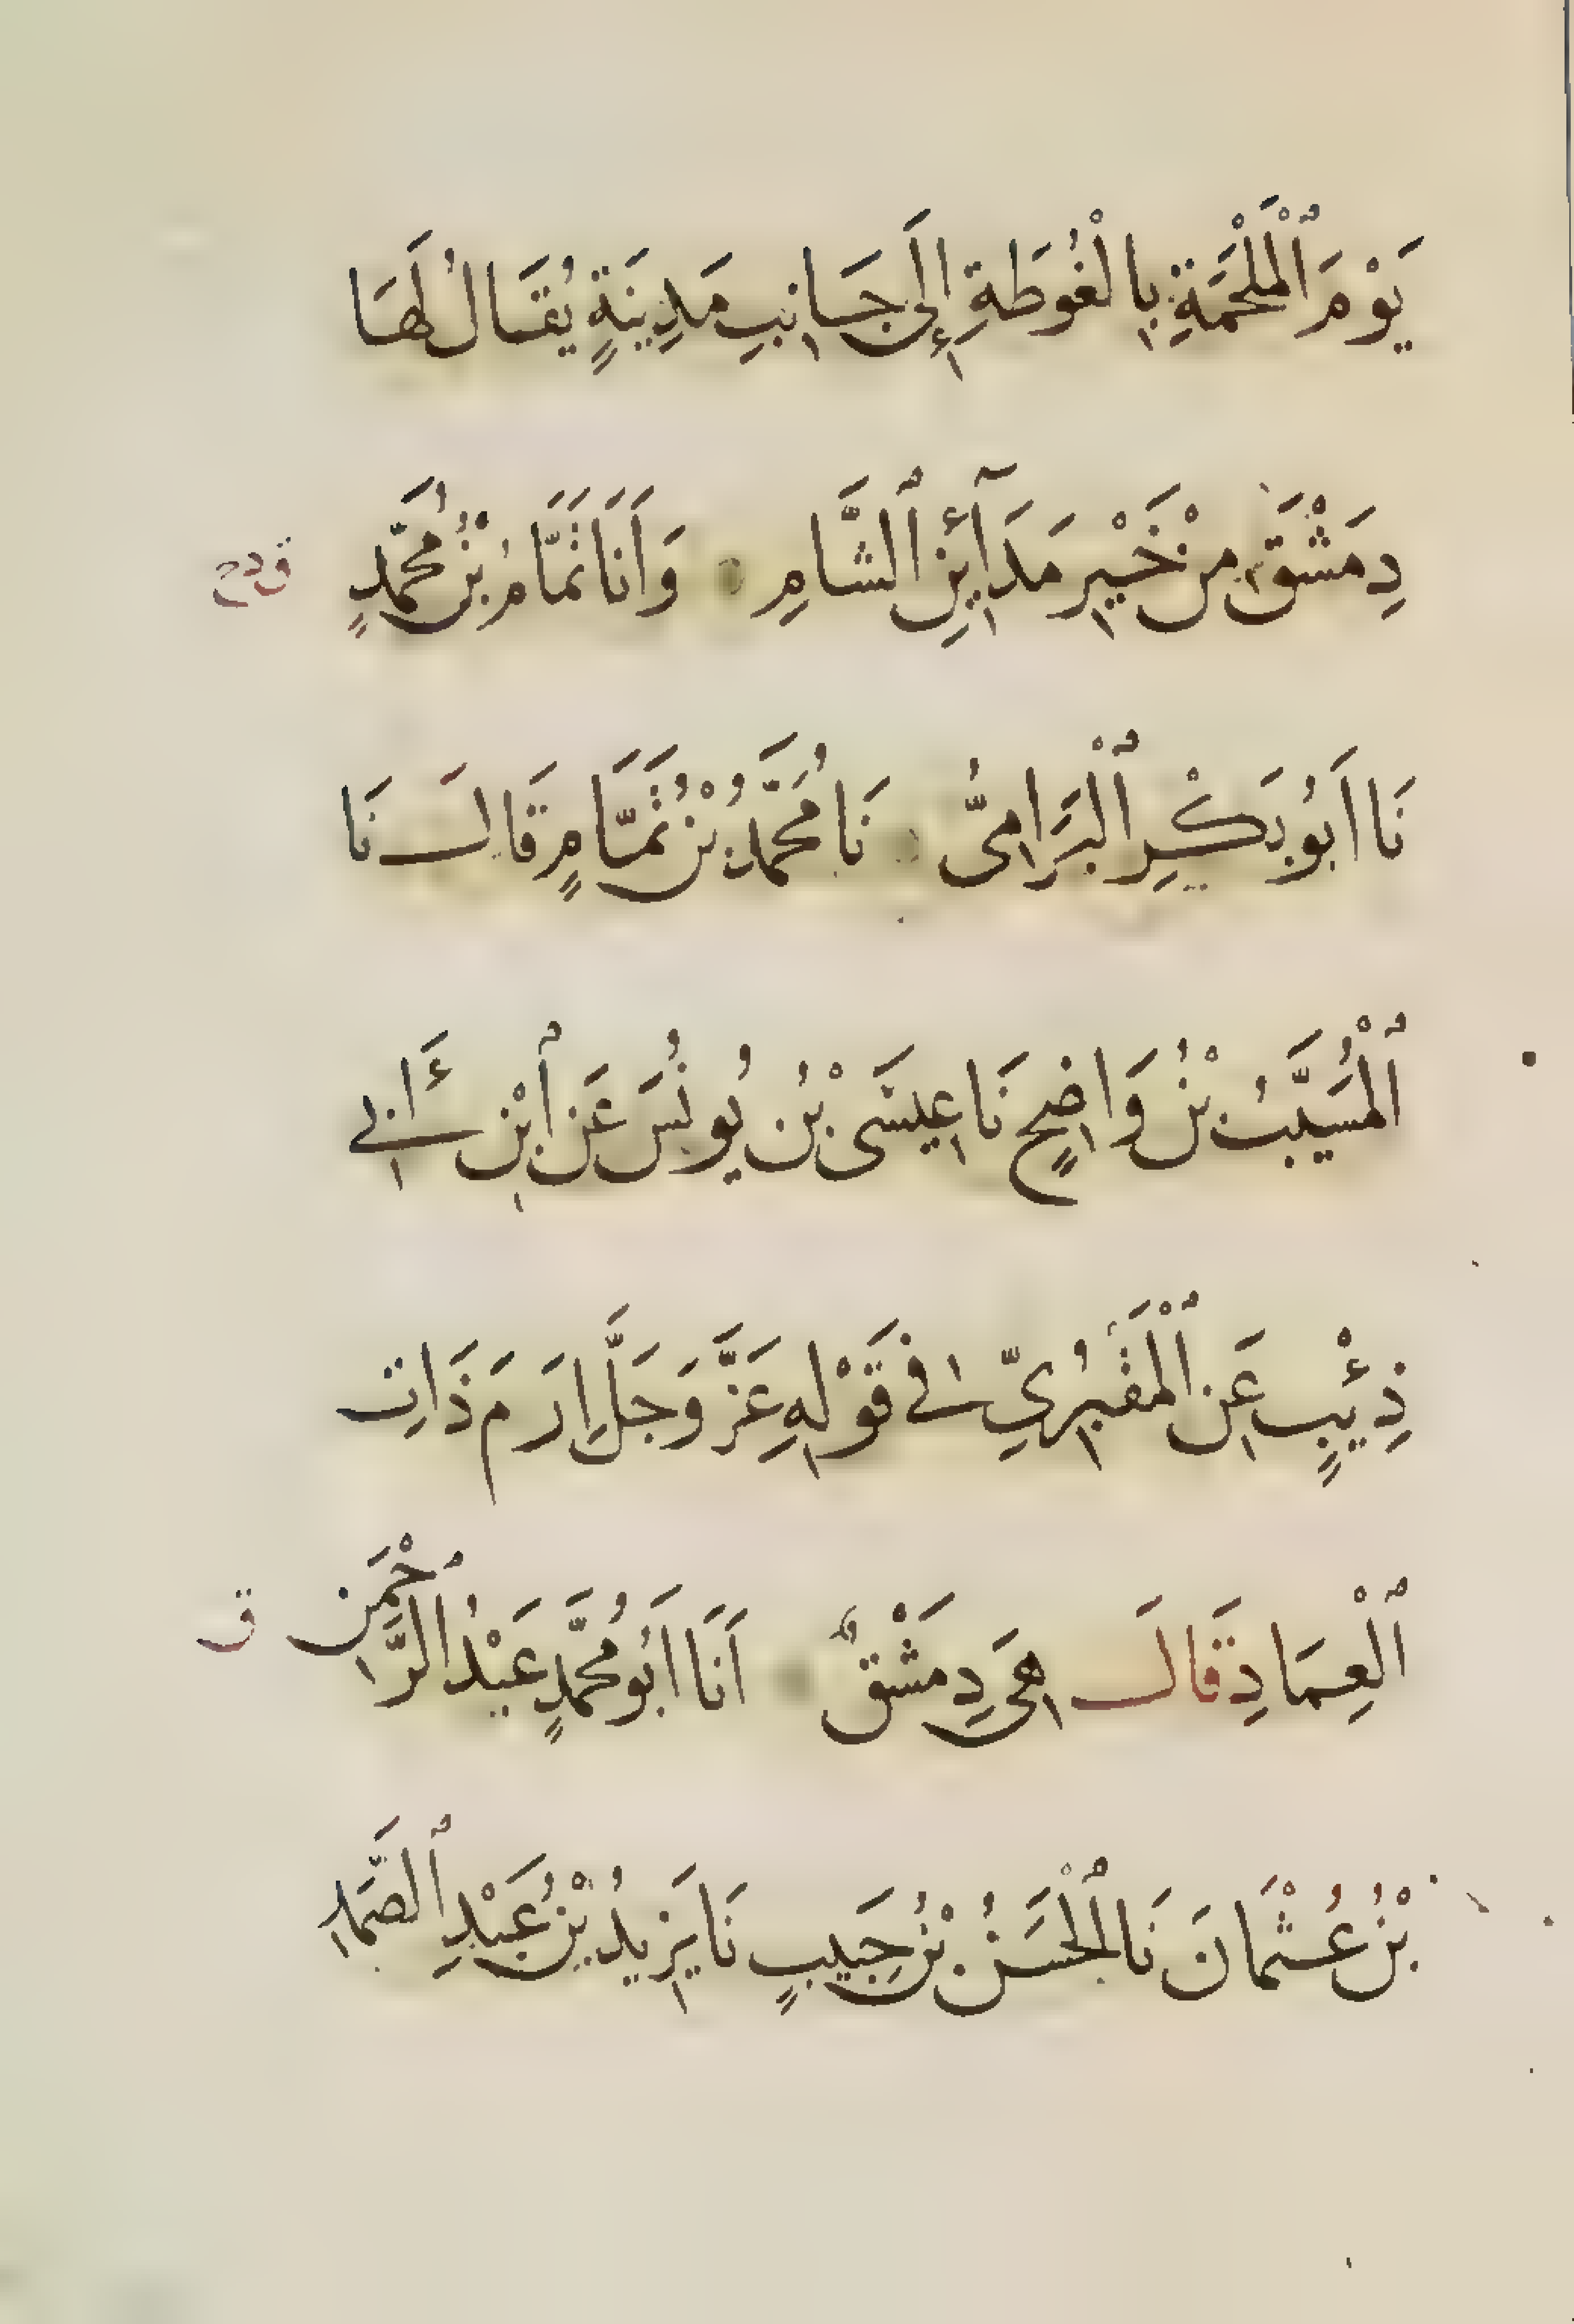 يَوْمَ ٱلْمَلْحَمَةِ بِالْغُوطَةِ إِلَى جَانِبِ مَدِينَةٍ يُقَالُ لَهَا
دِمَشْقَ مِنْ خَيْرِ مَدَآئِنِ ٱلشَّامِ وَاَنَا تَمَّامُ بْنُ مُحَمَّدٍ
نَا اَبُو بَكْرٍ ٱلْبَرَامِىُّ نَا مُحَمَّدُ بْنُ تَمَّامٍ قَالَ نَا
ٱلْمُسَيَّبُ بْنُ وَاضِحٍ نَا عِيسَى بْنُ يُونُسَ عَنِ ٱبْنِ أَبِي
ذِئْبٍ عَنِ ٱلْمَقْبُرِيِّ فِي قَوْلِهِ عَزَّ وَجَلَّ اِرَمَ ذَاتِ
ٱلْعِمَادِ قَالَ هِيَ دِمَشْقُ اَنَا اَبُو مُحَمَّدٍ عَبْدُ ٱلرَّحْمَنِ ق
بْنُ عُثْمَانَ نَا ٱلْحَسَنُ بْنُ حَبِيبٍ نَا يَزِيدُ بْنُ عَبْدِ ٱلصَّمَدِ